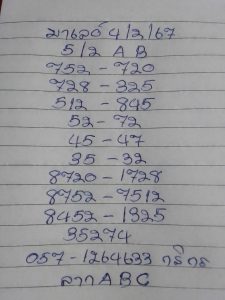 มาเลย์ 4/2/67
5/2 A B
752 - 720
728 - 325
512 - 845
52 - 72
45 - 47
35 - 32
8720 - 1728
8752 - 7512
8452 - 1325
35274
057 - 1264633
ลาว A B C